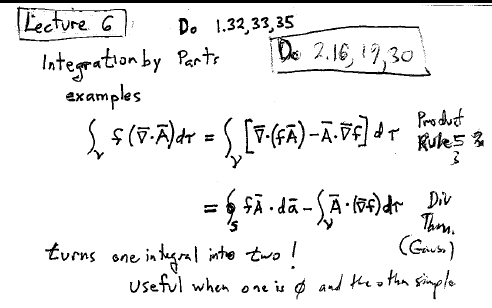 Lecture 6 Do 1.32,33,35
Integration by Parts Do 2.16,19,30
examples
∫_v f(∇̄·Ā)dτ = ∫_v [∇̄·(fĀ) – Ā·∇̄f] dτ Product Rule 5
= ∮_S fĀ·dā – ∫_v Ā·(∇̄f)dτ Div Thm. (Gauss)
turns one integral into two!
Useful when one is ø and the other simple